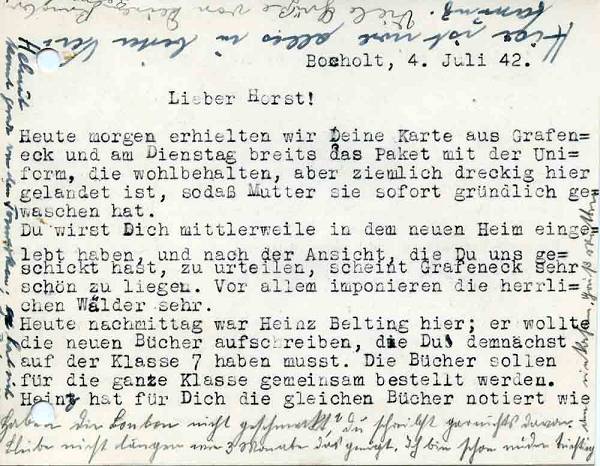 Hier ist noch alles in bester
Ordnung. Viele Grüße von Deine
Bocholt, 4. Juli 42.
Lieber Horst!
Heute morgen erhielten wir Deine Karte aus Grafen=
eck und am Dienstag breits das Paket mit der Uni=
form, die wohlbehalten, aber ziemlich dreckig hier
gelandet ist, sodaß Mutter sie sofort gründlich ge
waschen hat.
Du wirst Dich mittlerweile in dem neuen Heim einge
lebt haben, und nach der Ansicht, die Du uns ge=
schickt hast, zu urteilen, scheint Grafeneck sehr
schön zu liegen. Vor allem imponieren die herrli=
chen Wälder sehr.
Heute nachmittag war Heinz Belting hier; er wollte
die neuen Bücher aufschreiben, die Du demnächst
auf der Klasse 7 haben musst. Die Bücher sollen
für die ganze Klasse gemeinsam bestellt werden.
Heinz hat für Dich die gleichen Bücher notiert wie
Haben Dir Bonbon nicht geschmeckt? Du schreibst garnichts davon.
Bleibe nicht länger wie 3 Monate das genügt. Ich bin schon wieder tüchtig
Helmut